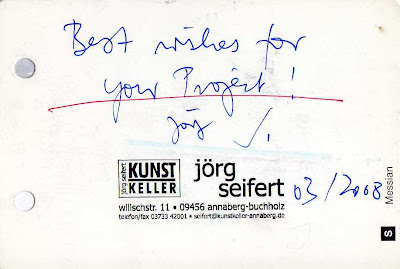 Best wishes for
your Project!
jörg S.
jörg seifert
KUNST
KELLER
jörg
seifert
03/2008
willischstr. 11 • 09456 annaberg-buchholz
telefon/fax 03733 42001 • seifert@kunstkeller-annaberg.de
Messian
S